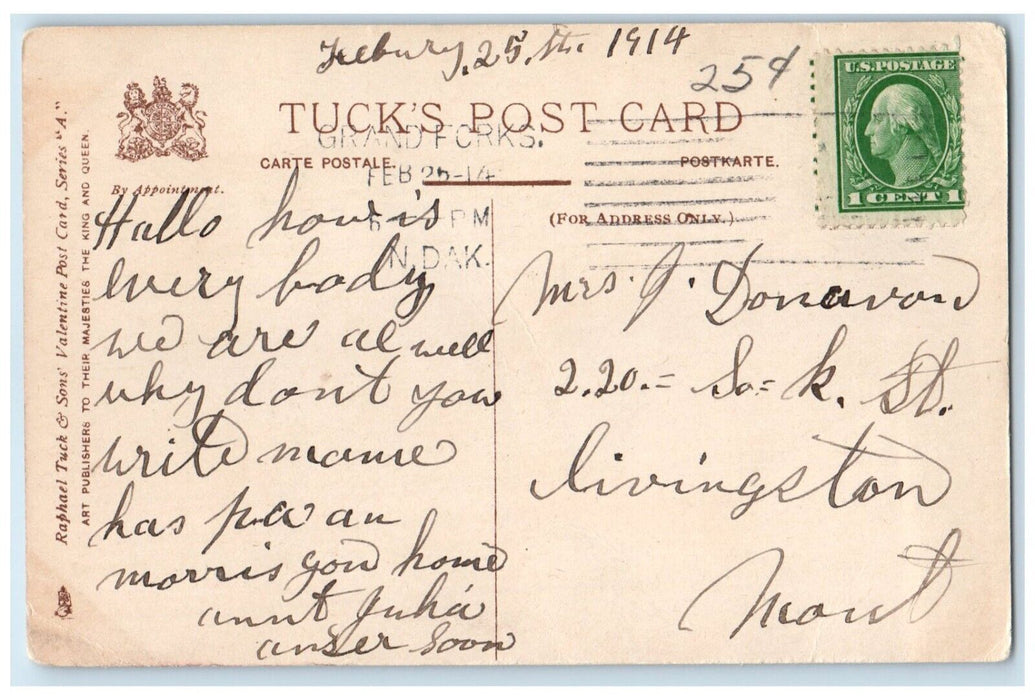 Febury, 25, th. 1914
25¢
U.S. POSTAGE
1 CENT 1
TUCK'S POST CARD
GRAND FORKS.
FEB 25-14
PM
N. DAK.
CARTE POSTALE.
POSTKARTE.
By Appointment.
(FOR ADDRESS ONLY.)
Raphael Tuck & Sons' Valentine Post Card, Series "A."
ART PUBLISHERS TO THEIR MAJESTIES THE KING AND QUEEN.
Hallo how is
every body
we are al well
why dont you
write mame
has pa an
morris gon home
aunt Julia
anser soon
Mrs. J. Donavon
2.20.= So= k. St.
livingston
Mont